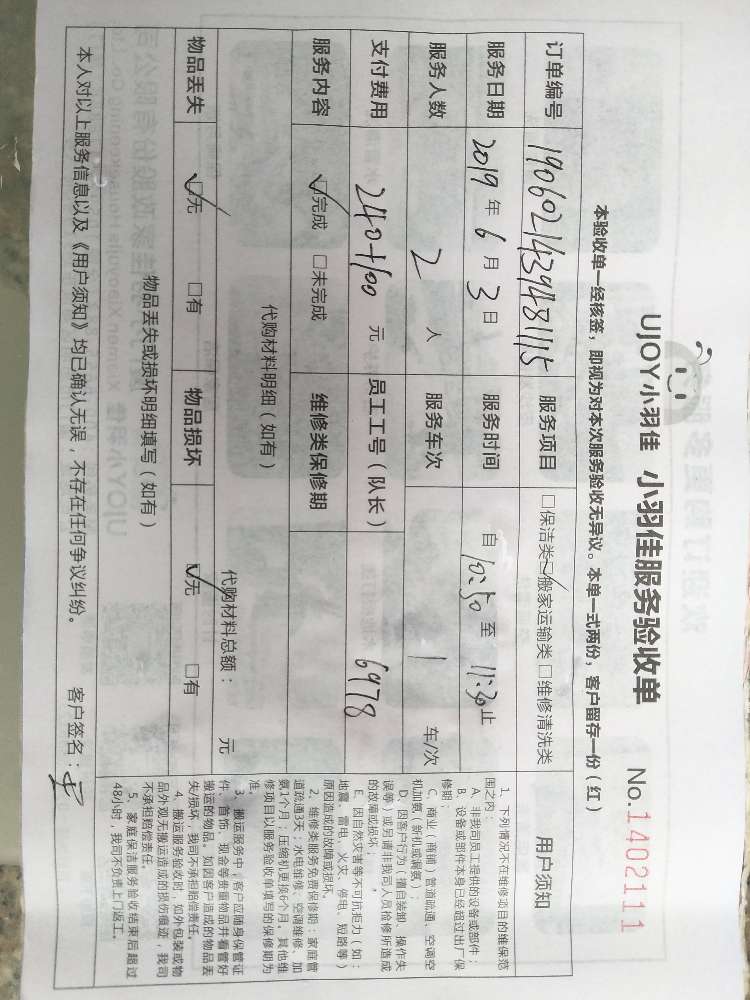 UJOY小羽佳 小羽佳服务验收单 No.1402111
本验收单一经核签，即视为对本次服务验收无异议。本单一式两份，客户留存一份（红）
订单编号 190602143948115 服务项目 □保洁类☑搬家运输类□维修清洗类
服务日期 2019年6月3日 服务时间 自10:50至11:30止
服务人数 2人 服务车次 1车/次
支付费用 240+100元 员工工号（队长） 6978
服务内容 ☑完成 □未完成 维修类保修期
代购材料明细（如有）
代购材料总额： 元
物品丢失 ☑无 □有 物品损坏 ☑无 □有
物品丢失或损坏明细填写（如有）
用户须知
1、下列情况不在维修项目的维保范
围之内：
A、非我司员工提供的设备或部件；
B、设备或部件本身已经超过出厂保
修期；
C、商业（商铺）管道疏通、空调空
机加氨（新机或漏氨）；
D、因客户行为（擅自装卸、操作失
误等）或另请非我司人员检修所造成
的故障或损坏；
E、因自然灾害等不可抗拒力（如：
地震、雷电、火灾、停电、短路等）
原因造成的故障或损坏。
2、维修类服务免费保修期：家庭管
道疏通3天；水电维修、空调维修、加
氨1个月；压缩机更换6个月。其他维
修项目以服务验收单填写的保修期为
准。
3、搬运服务中，客户应随身保管证
件、首饰、现金等贵重物品并看管好
搬运的物品。如因客户造成的物品丢
失/损坏，我司不承担赔偿责任。
4、搬运服务验收时，如外包装或物
品外观无搬运造成的损伤痕迹，我司
不承担赔偿责任。
5、家庭保洁服务验收结束后超过
48小时，我司不负责上门返工。
本人对以上服务信息以及《用户须知》均已确认无误，不存在任何争议纠纷。 客户签名：